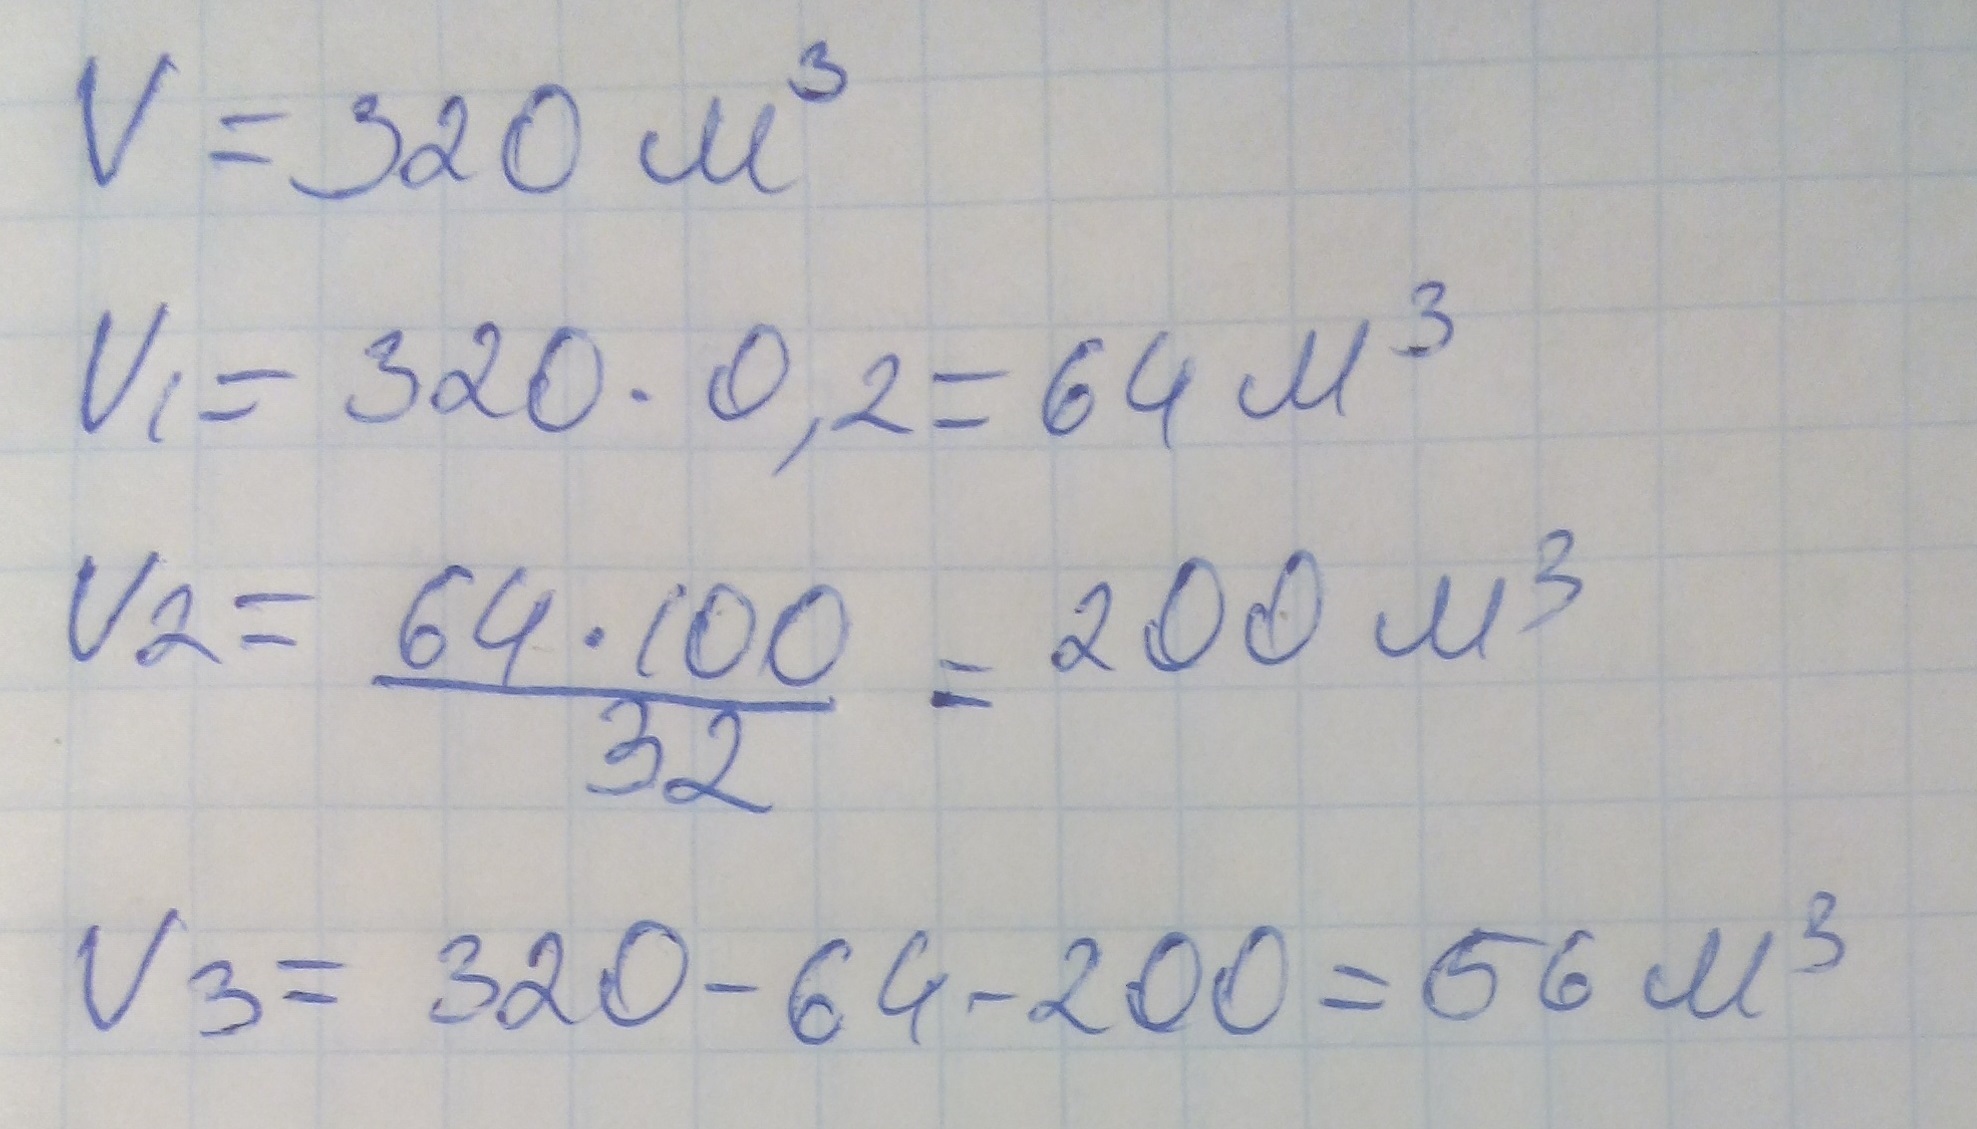 V = 320 м³
V₁ = 320 · 0,2 = 64 м³
V₂ = 64 · 100 / 32 = 200 м³
V₃ = 320 - 64 - 200 = 56 м³